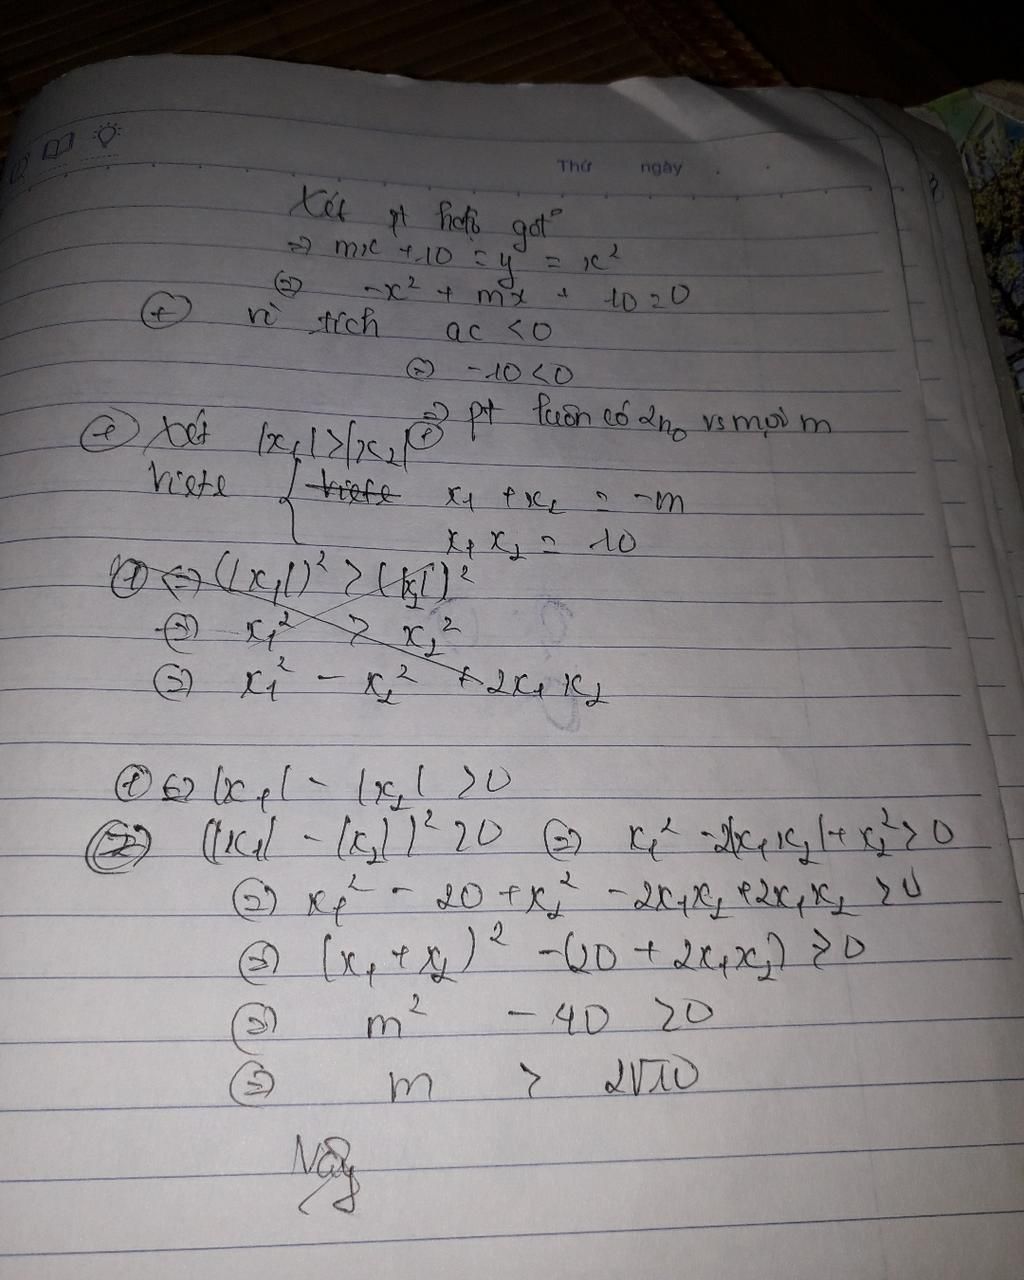 Thứ ngày
Xét pt hđộ gđ°
⇒ mx + 10 = y = x²
⇔ -x² + mx + 10 = 0
+ vì tích ac < 0
⇔ -10 < 0
⇒ pt luôn có 2n₀ vs mọi m
+ Xét |x₁| > |x₂|
viete { viete x₁ + x₂ = -m
x₁ x₂ = 10
⇔ (|x₁|)² > (|x₂|)²
⇔ x₁² > x₂²
⇔ x₁² - x₂² + 2x₁ x₂
⇔ |x₁| - |x₂| > 0
(|x₁| - |x₂|)² > 0 ⇔ x₁² - 2|x₁x₂| + x₂² > 0
⇔ x₁² - 20 + x₂² - 2x₁x₂ + 2x₁x₂ > 0
⇔ (x₁ + x₂)² - (20 + 2x₁x₂) > 0
⇔ m² - 40 > 0
⇔ m > 2√10
Vậy